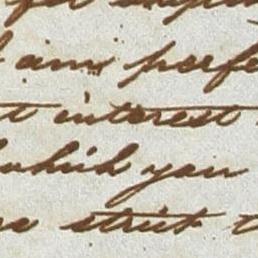 am perfe
t interest
which you
strict t